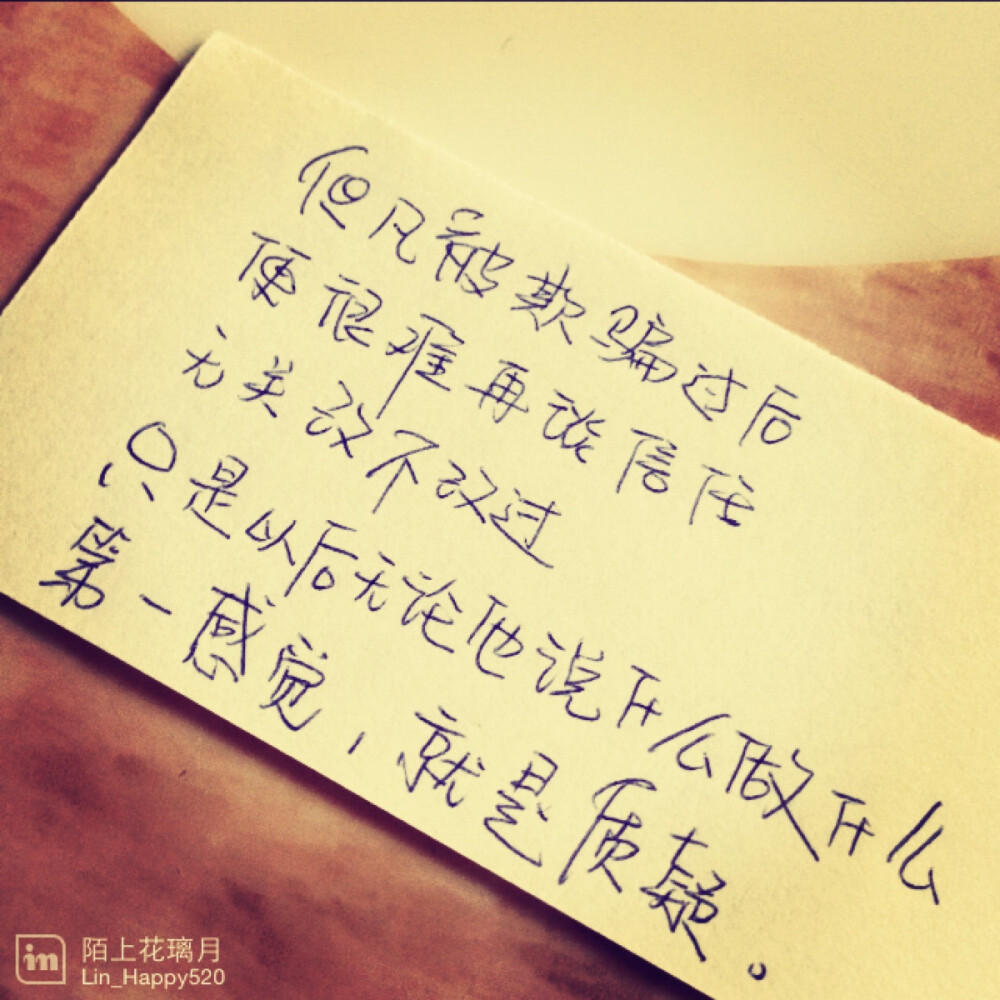 但凡被欺骗过后
便很难再谈信任
无关改不改过
只是以后无论他说开么做开么
第一感觉，就是质疑。
im 陌上花璃月
Lin_Happy520